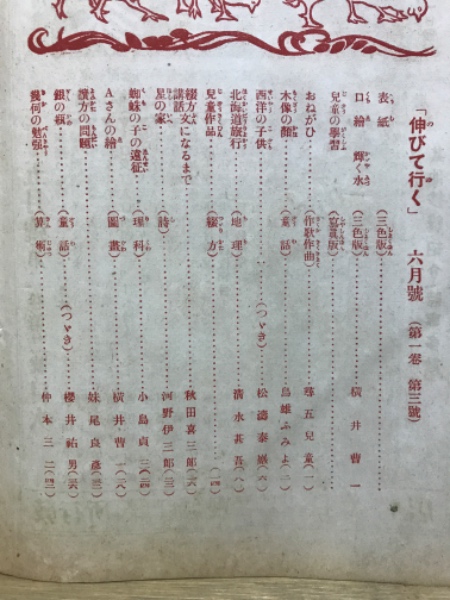 「伸びて行く」 六月號 (第一卷 第三號)
表紙 (三色版)
口繪 輝く水 (三色版) 橫井曹一
兒童の學習 (寫眞版)
おねがひ (作歌作曲) 尋五兒童 (一)
木像の顏 (童話) 鳥雄ふみよ (二)
西洋の子供 (つゞき) 松濤泰巖 (六)
北海道旅行 (地理) 淸水甚吾 (八)
兒童作品 (綴方)
綴方講話 文になるまで 秋田喜三郎
星の家 (詩) 河野伊三郎
蜘蛛の子の遠征 (理科) 小島貞二
Aさんの繪 (圖畫) 橫井曹一
讀方の問題 妹尾良彥
銀の瓶 (童話) (つゞき) 櫻井祐男
幾何の勉強 (算術) 仲本三二